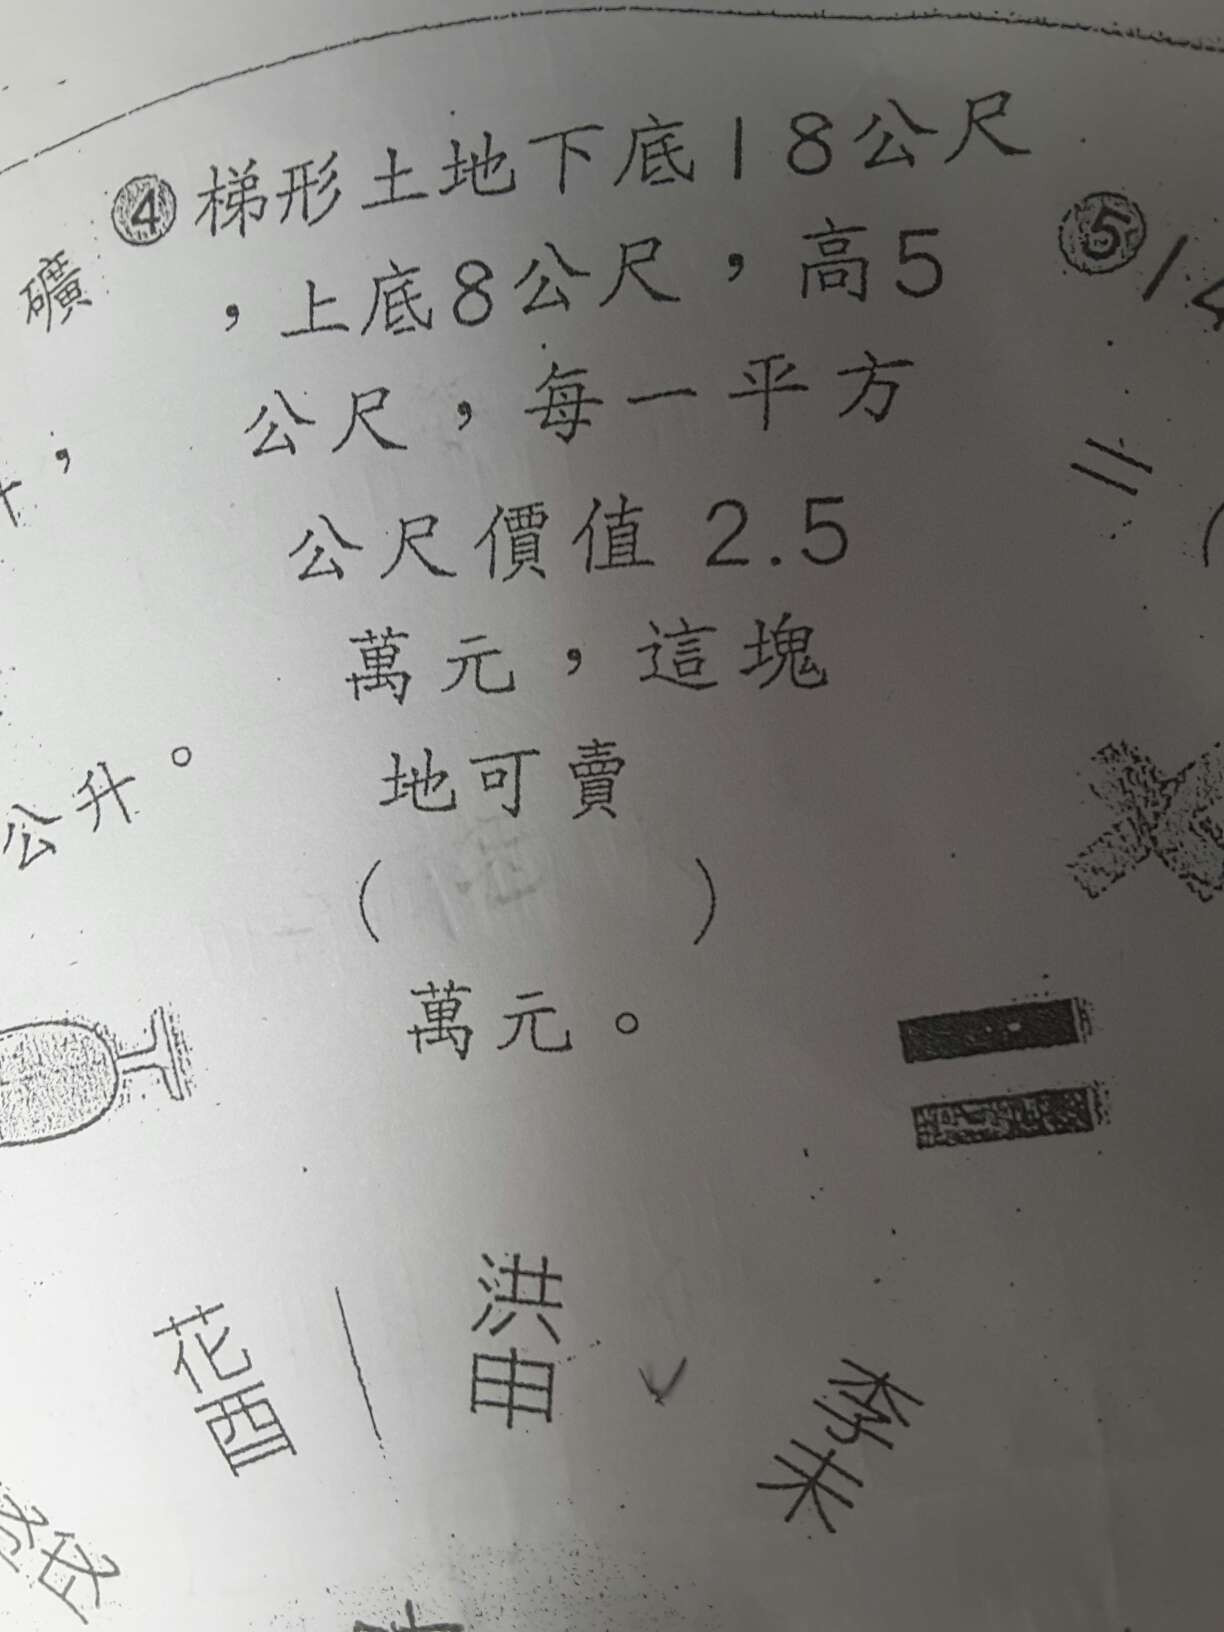 ④梯形土地下底18公尺
，上底8公尺，高5
公尺，每一平方
公尺價值 2.5
萬元，這塊
地可賣
（　　　）
萬元。
礦
，
公升。
⑤
=
花酉
洪申
李未